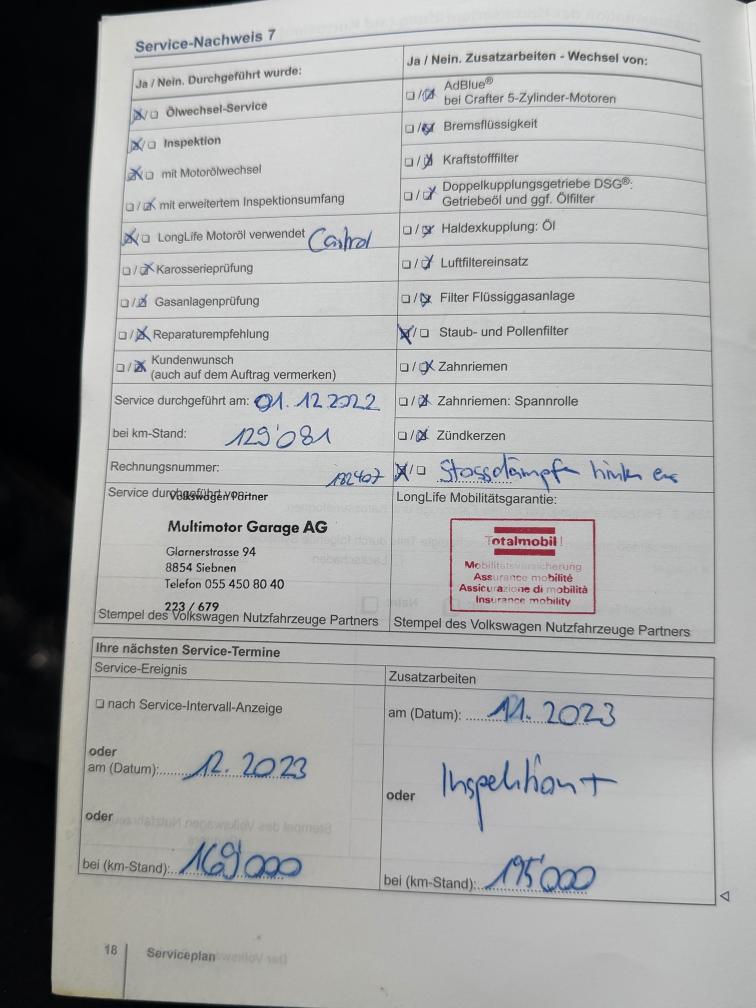 Service-Nachweis 7
Ja / Nein. Durchgeführt wurde:
Ölwechsel-Service
Inspektion
mit Motorölwechsel
mit erweitertem Inspektionsumfang
LongLife Motoröl verwendet Castrol
Karosserieprüfung
Gasanlagenprüfung
Reparaturempfehlung
Kundenwunsch
(auch auf dem Auftrag vermerken)
Service durchgeführt am: 01.12.2022
bei km-Stand: 129'081
Rechnungsnummer: 182407
Service durchgeführt
Volkswagen Partner
Multimotor Garage AG
Glarnerstrasse 94
8854 Siebnen
Telefon 055 450 80 40
223 / 679
Stempel des Volkswagen Nutzfahrzeuge Partners
Ja / Nein. Zusatzarbeiten - Wechsel von:
AdBlue®
bei Crafter 5-Zylinder-Motoren
Bremsflüssigkeit
Kraftstofffilter
Doppelkupplungsgetriebe DSG®:
Getriebeöl und ggf. Ölfilter
Haldexkupplung: Öl
Luftfiltereinsatz
Filter Flüssiggasanlage
Staub- und Pollenfilter
Zahnriemen
Zahnriemen: Spannrolle
Zündkerzen
Stossdämpfer hinten
LongLife Mobilitätsgarantie:
Totalmobil!
Mobilitätsversicherung
Assurance mobilité
Assicurazione di mobilità
Insurance mobility
Stempel des Volkswagen Nutzfahrzeuge Partners
Ihre nächsten Service-Termine
Service-Ereignis
nach Service-Intervall-Anzeige
oder
am (Datum): 12. 2023
oder
bei (km-Stand): 169'000
Zusatzarbeiten
am (Datum): 11. 2023
oder Inspektion +
bei (km-Stand): 195'000
18 Serviceplan